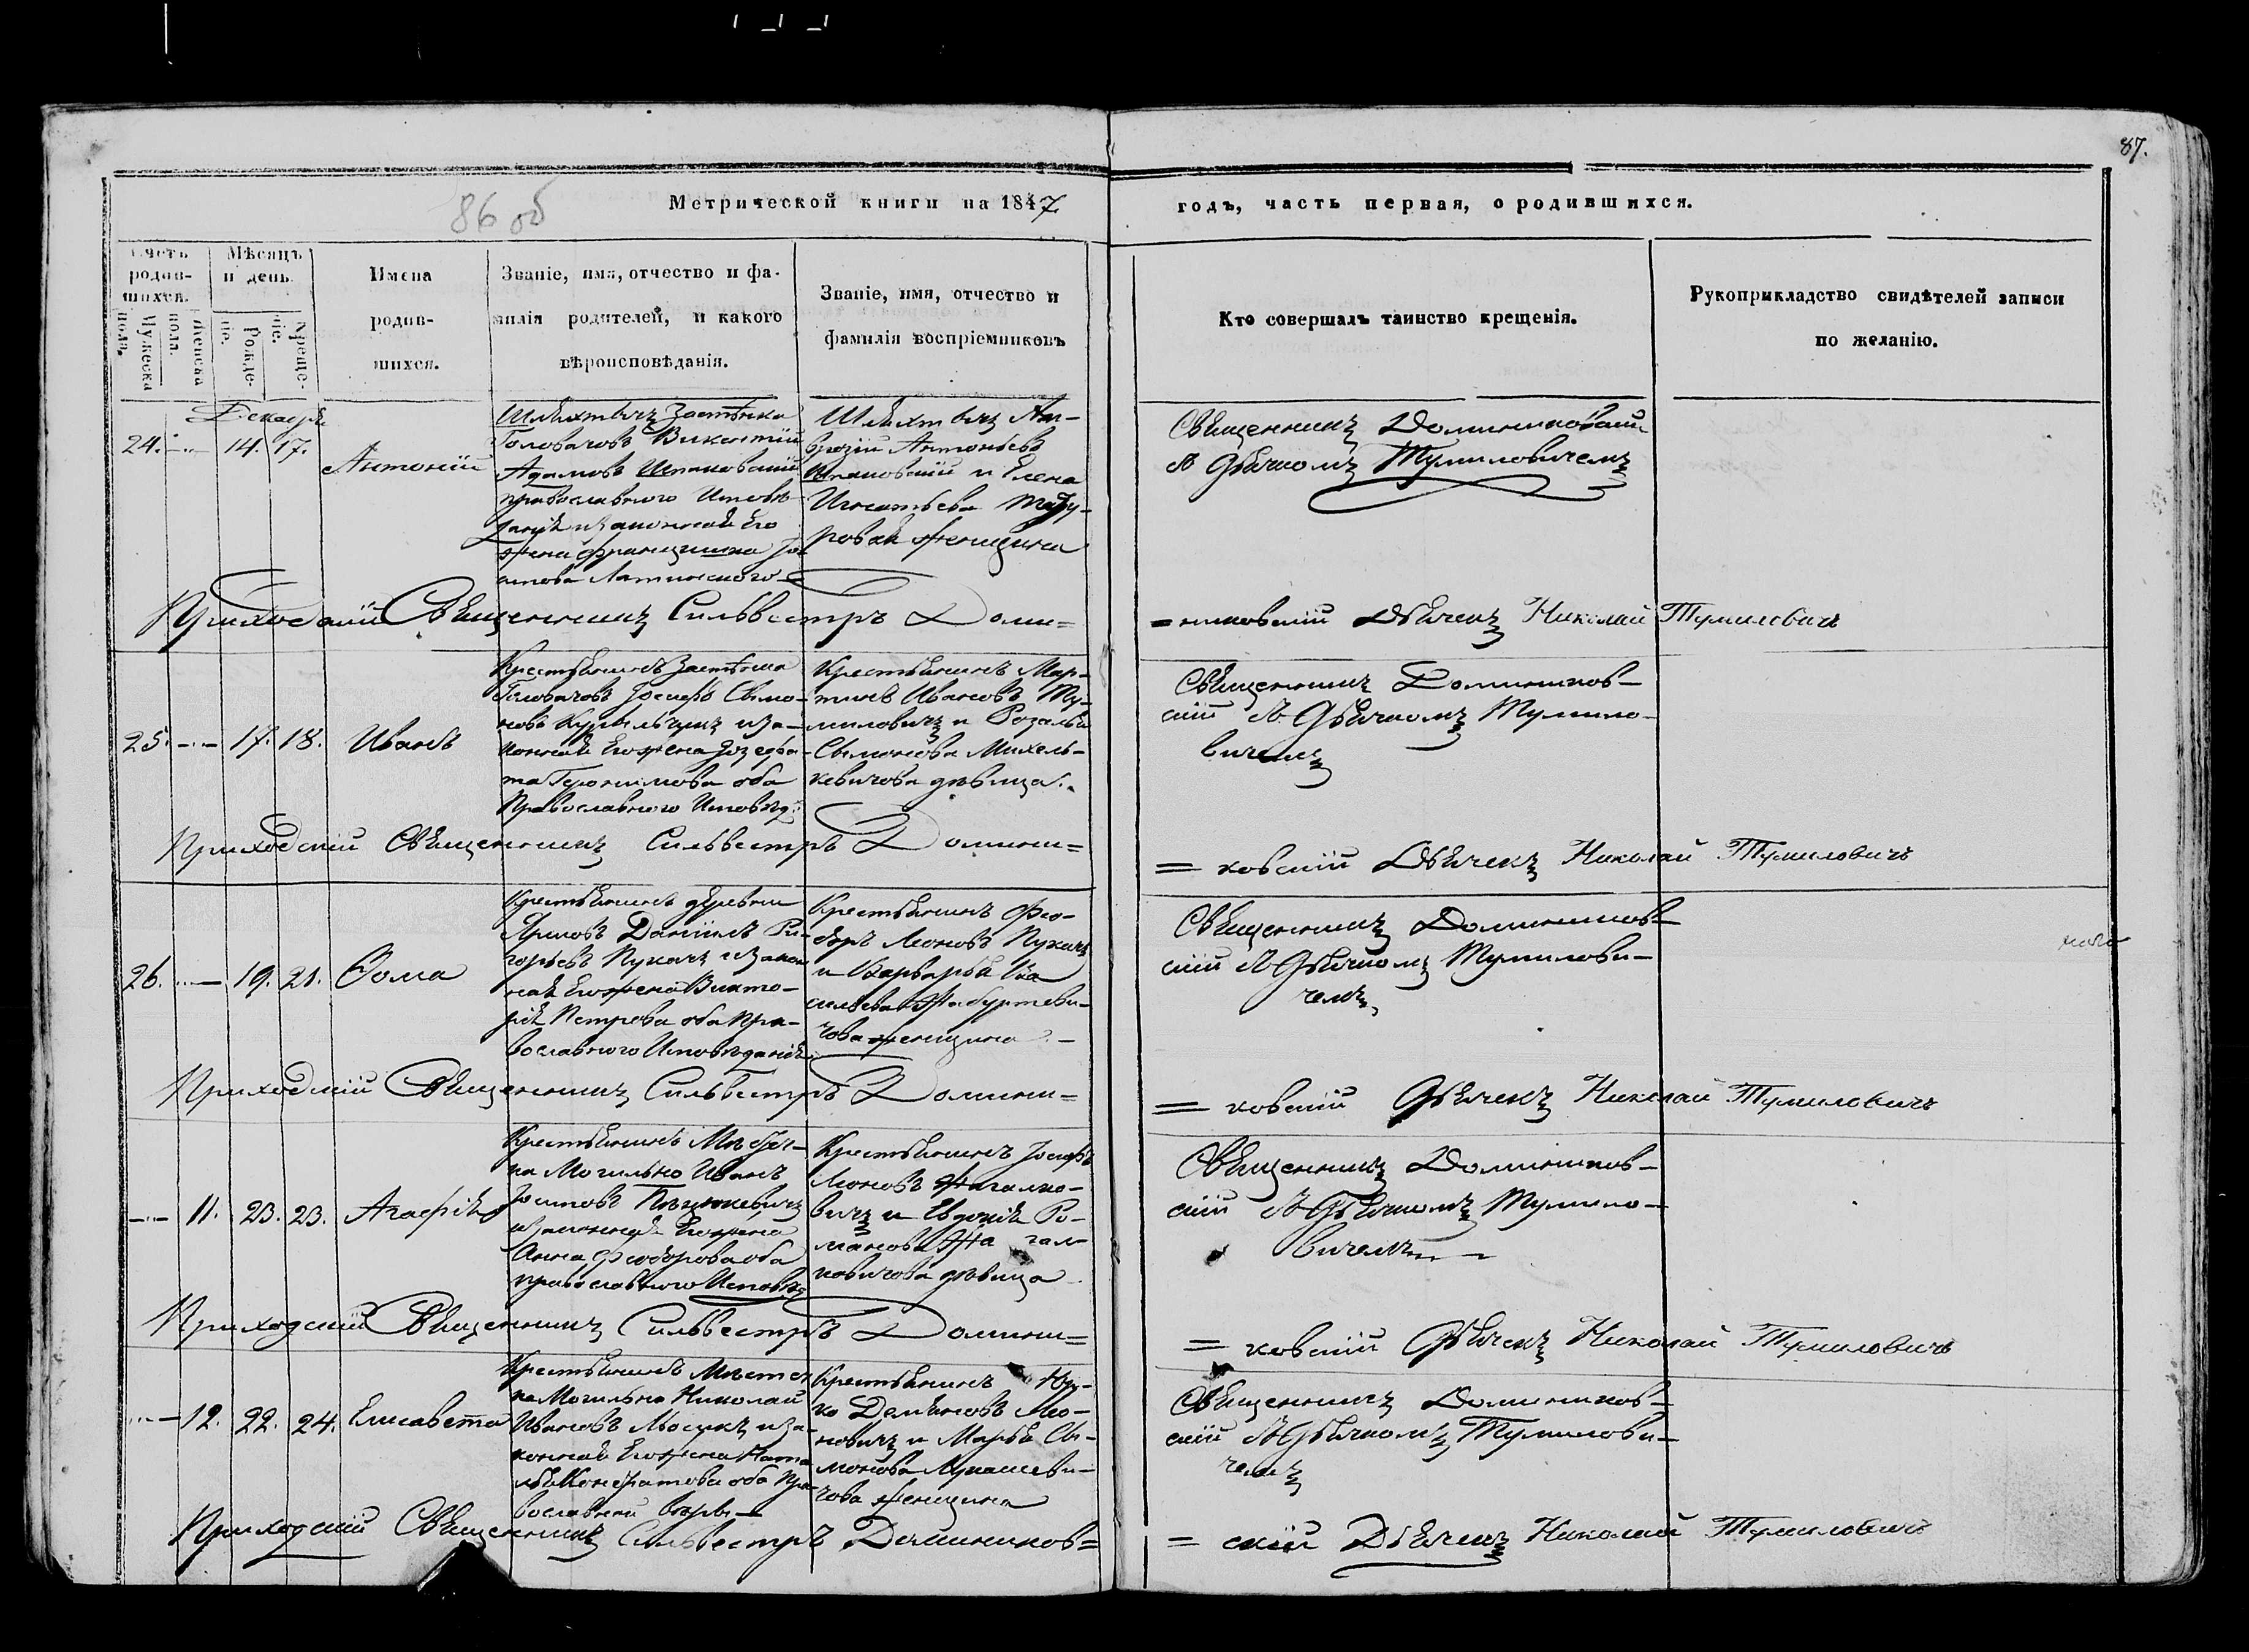 87.
86 об
Метрической книги на 1847
годъ, часть первая, о родившихся.
Счетъ родив-шихся.
Мужеска пола.
Женска пола.
Мѣсяцъ и день.
Рожде-ніе.
Креще-ніе.
Имена
родив-
шихся.
Званіе, имя, отчество и фа-
милія родителей, и какого
вѣроисповѣданія.
Званіе, имя, отчество и
фамилія воспріемниковъ
Кто совершалъ таинство крещенія.
Рукоприкладство свидѣтелей записи
по желанію.
Декабря
24. 14. 17.
Антоній
Шляхтичъ Застѣнка
Головачовъ Викентій
Адамовъ
православного Исповѣ-
данія и законная Его
жена Францишка
Латинского
Шляхтичъ Ам-
врозій Антоньевъ
и Елена
Игнатьева
женщина
Священникъ Доминиковскій
съ Дьячкомъ Тумиловичемъ
Приходскій Священникъ Сильвестръ Доми=
=никовскій Дьячекъ Николай Тумиловичъ
25. 17. 18. Иванъ
Крестьянинъ Застѣнка
Головачовъ Іосифъ Сымо-
новъ и за-
конная Его жена Іозефа-
та Геронимова оба
Православного Исповѣд:
Крестьянинъ Мар-
тинъ Ивановъ Ту-
миловичъ и Розалія
Сымонова Михель-
кевичова дѣвица.
Священникъ Домиников-
скій съ Дьячкомъ Тумило-
вичемъ
Приходскій Священникъ Сильвестръ Домини=
= ковскій Дьячекъ Николай Тумиловичъ
26. 19. 21. Ѳома
Крестьянинъ деревни
Даніилъ Гри-
горьевъ Пукачъ и закон
ная Его жена Викто-
рія Петрова оба Пра-
вославного Исповѣданія
Крестьянинъ Фео-
доръ Леоновъ Пукачъ
и Варвара Ва
сильева
женщина
Священникъ Домиников-
скій съ Дьячкомъ Тумилови-
чемъ
Приходскій Священникъ Сильвестръ Домини=
= ковскій Дьячекъ Николай Тумиловичъ
11. 23. 23. Агафія
Крестьянинъ Мѣстеч-
ка Могильно Иванъ
Іосифовъ
и законная Его жена
Анна Феодорова оба
православного Исповѣд
Крестьянинъ Іосифъ
Леоновъ Жагалко-
вичъ и Евдокія Ро-
манова Жагал-
ковичова дѣвица
Священникъ Домиников-
скій съ Дьячкомъ Тумило-
вичемъ
Приходскій Священникъ Сильвестръ Домини=
= ковскій Дьячекъ Николай Тумиловичъ
12. 22. 24. Елисавета
Крестьянинъ Мѣстеч
ка Могильно Николай
Ивановъ и за-
конная Его жена Ната
лья Кондратова оба Пра-
вославной вѣры
Крестьянинъ Юр-
ко Демьяновъ Лео-
новичъ и Марья Си-
монова Лукашеви-
чова женщина
Священникъ Домиников-
скій съ Дьячкомъ Тумилови-
чемъ
Приходскій Священникъ Сильвестръ Домиников=
= скій Дьячекъ Николай Тумиловичъ